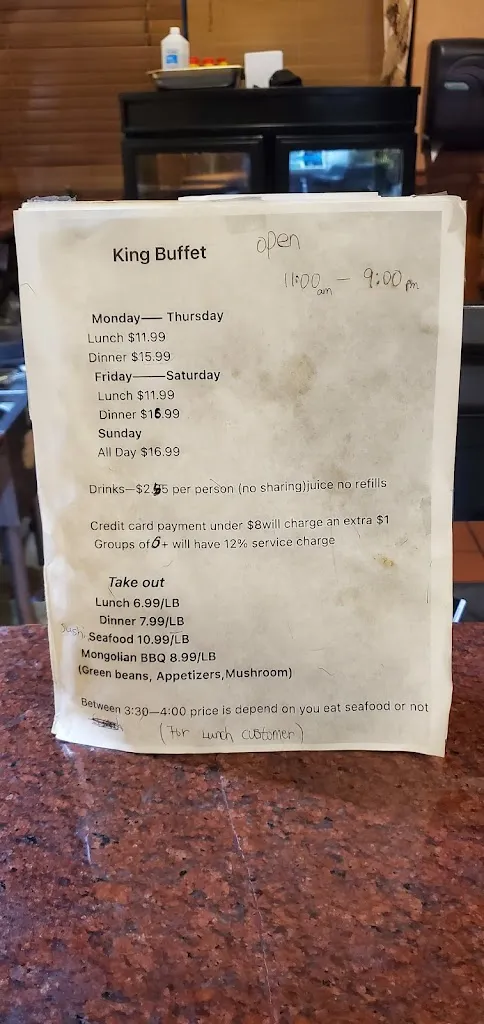 King Buffet
open
11:00 am – 9:00 pm
Monday — Thursday
Lunch $11.99
Dinner $15.99
Friday——Saturday
Lunch $11.99
Dinner $16.99
Sunday
All Day $16.99
Drinks—$2.55 per person (no sharing)juice no refills
Credit card payment under $8will charge an extra $1
Groups of 6+ will have 12% service charge
Take out
Lunch 6.99/LB
Dinner 7.99/LB
Sushi Seafood 10.99/LB
Mongolian BBQ 8.99/LB
(Green beans, Appetizers,Mushroom)
Between 3:30—4:00 price is depend on you eat seafood or not
(For Lunch customer)